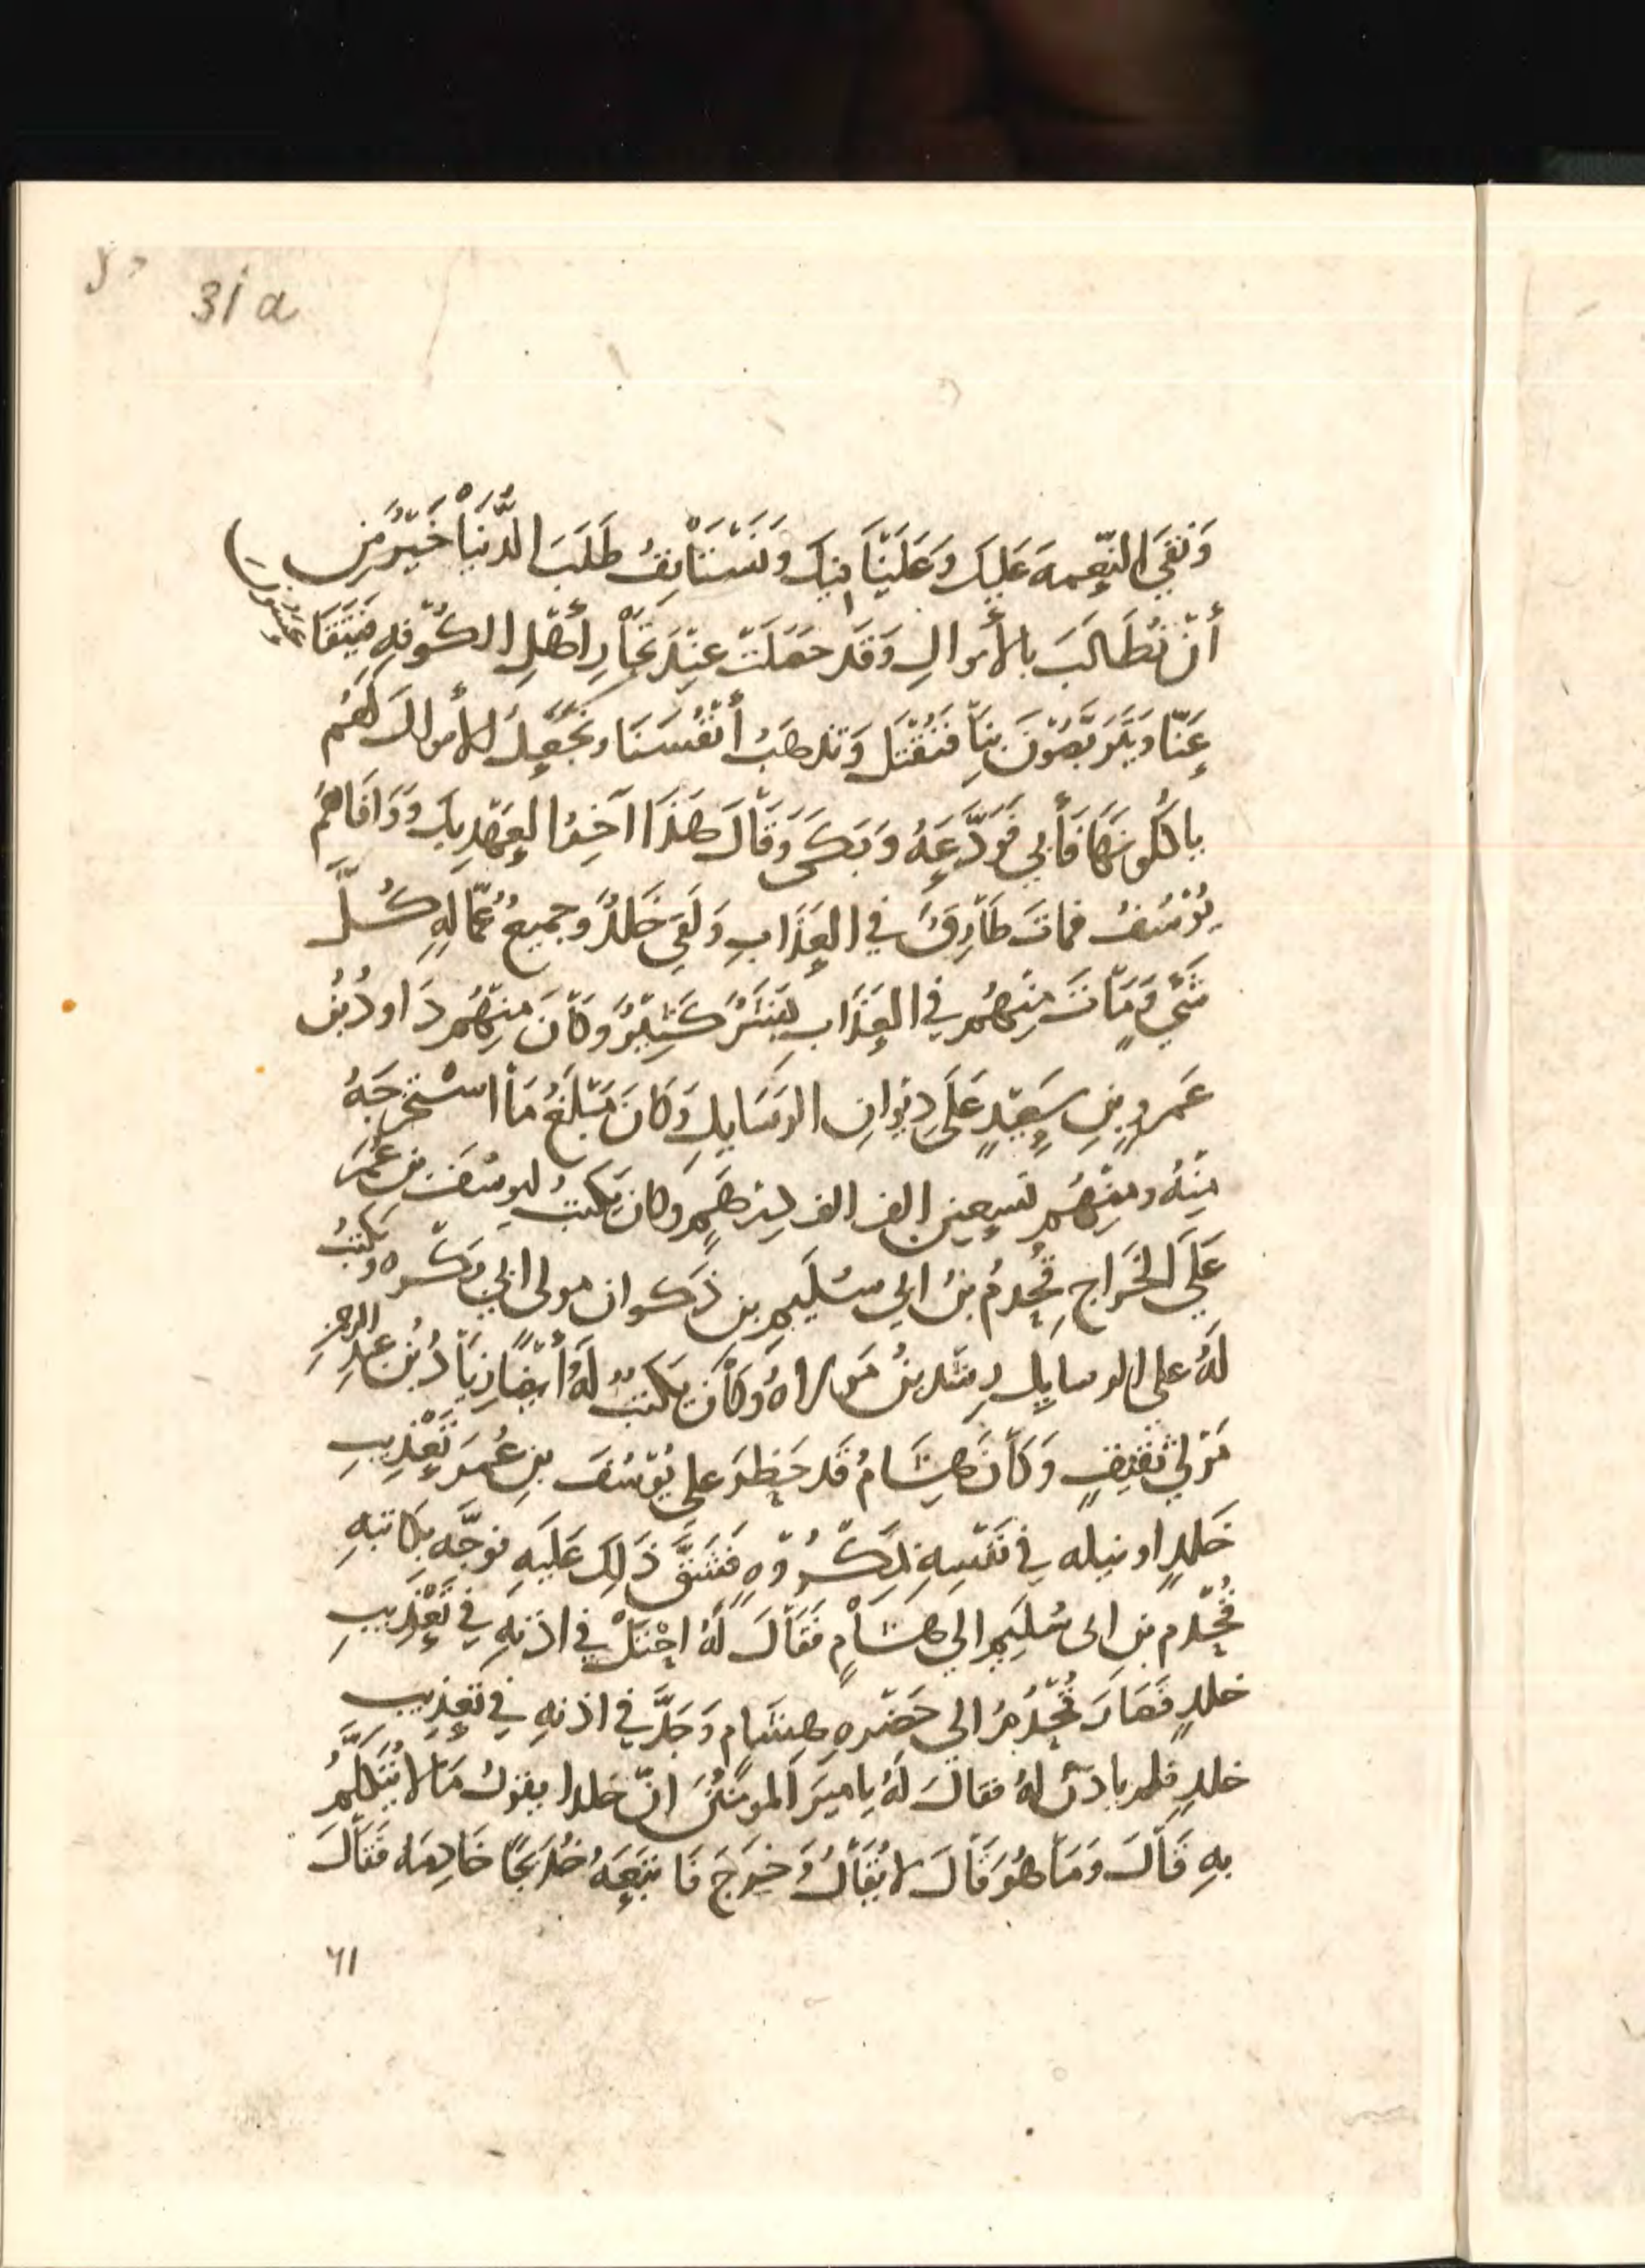 31a
وَتَبْقَى النِّعمه عَلَيكَ وَعَلَيْنَا فيكَ وَنَسْتَأنِفُ طَلَبَ الدُّنْيَا خَيْرٌ مِن
أنْ نُطَالَبَ بالأموالِ وَقَد حَصَلَتْ عِنْدَ تجَّارِ أهْلِ الكُوْفهِ فَيَتَقَاعَسُون
عَنّا وَيَتَرَبَّصُوْنَ بِنَا فَنُقْتَل وَتذهَبُ أنْفُسَنَا وَتَحْصلُ الأموالَ لَهُم
يا كلونهَا فَأبي فَوَدَّعَهُ وَبَكَى وَقَالَ هَذَا آخِرُ العَهْدِ بِكَ وَوَافَاهُمْ
يُوْسُفُ فماتَ طَارِقٌ في العَذَابِ وَلَقي خَلدٌ وجميعُ عُمّالِهِ كُلَّ
شَيْءٍ وَمَاتَ مِنْهُم في العَذَابِ بَشَرٌ كَثِيْرٌ وَكَانَ مِنْهُم دَاودُ بنُ
عَمرو بنِ سَعِيْدٍ عَلَى دِيْوانِ الرَسَايلِ وَكَانَ مَبْلَغُ مَا اسْتَخرجَهُ
مِنْهُ ومِنْهُم تسعين الف الف دِرهَمٍ وكان يَكتبُ ليوسُفَ بن عُمَرَ
عَلَى الخَراجِ قُحْذمُ بنُ ابي سُلَيم بن ذَكوان مولى ابي بَكْرَه وَيَكتُبُ
لَهُ على الرسايل رِشدينُ مَولاهُ وَكَانَ يَكتبُ لَهُ أيْضًا زيَادُ بْن عبد الرحمنِ
مَوْلى ثَقيفٍ وَكَانَ هِشَامُ قَد حَظرَ على يُوْسُفَ بنِ عُمَرَ تَعْذِيبِ
خَلدٍ او نيله في نَفْسِهِ بمَكْرُوْهٍ فَشَقَّ ذَلِكَ عَلَيهِ فوَجَّه بِكَاتبهِ
قُحْذم بن ابى سُلَيمٍ الي هشَامٍ فَقَالَ لَهُ احْتلْ في اذنهِ في تَعْذِيبِ
خلدٍ فَصَارَ قُحْذمُ الى حَضْرهِ هِشَامٍ وَجَدَّ في اذنهِ في تَعذِيبِ
خلدٍ فلم ياذنْ لهُ فقالَ لَهُ يا مِيرَ المومنينَ انّ خلدا يقولُ مَا لا يُتَكَلَّمُ
بهِ قَالَ وَمَا هُوَ قَالَ لا يُقَالُ وَخرَجَ فَاتبَعَهُ خُدَيجًا خَادِمَه فَقَالَ
٦١